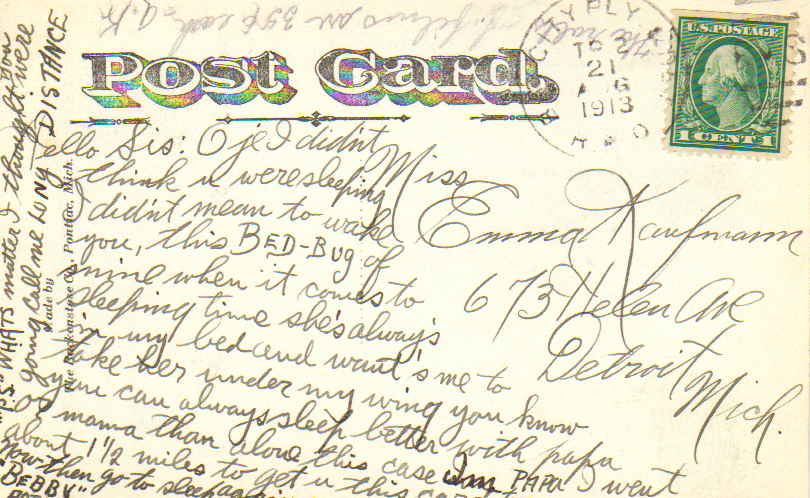 Post Card.
PLY
21
AUG
1913
U.S. POSTAGE
1 CENT 1
Hello Sis: Oje I didn't
think u were sleeping
I didn't mean to wake
you, this BED-Bug of
mine when it comes to
sleeping time she's always
in my bed and want's me to
take her under my wing you know
you can always sleep better with papa
or mama than alone this case I'm PAPA I went
about 1 1/2 miles to get u this card
now then go to sleep again
"BEBBY"
Miss
Emma Kaufmann
673 Helen Ave
Detroit
Mich.
"PS" WHATS matter I thought you were
going call me LONG DISTANCE
Made by
The Co., Pontiac, Mich.
35¢ each